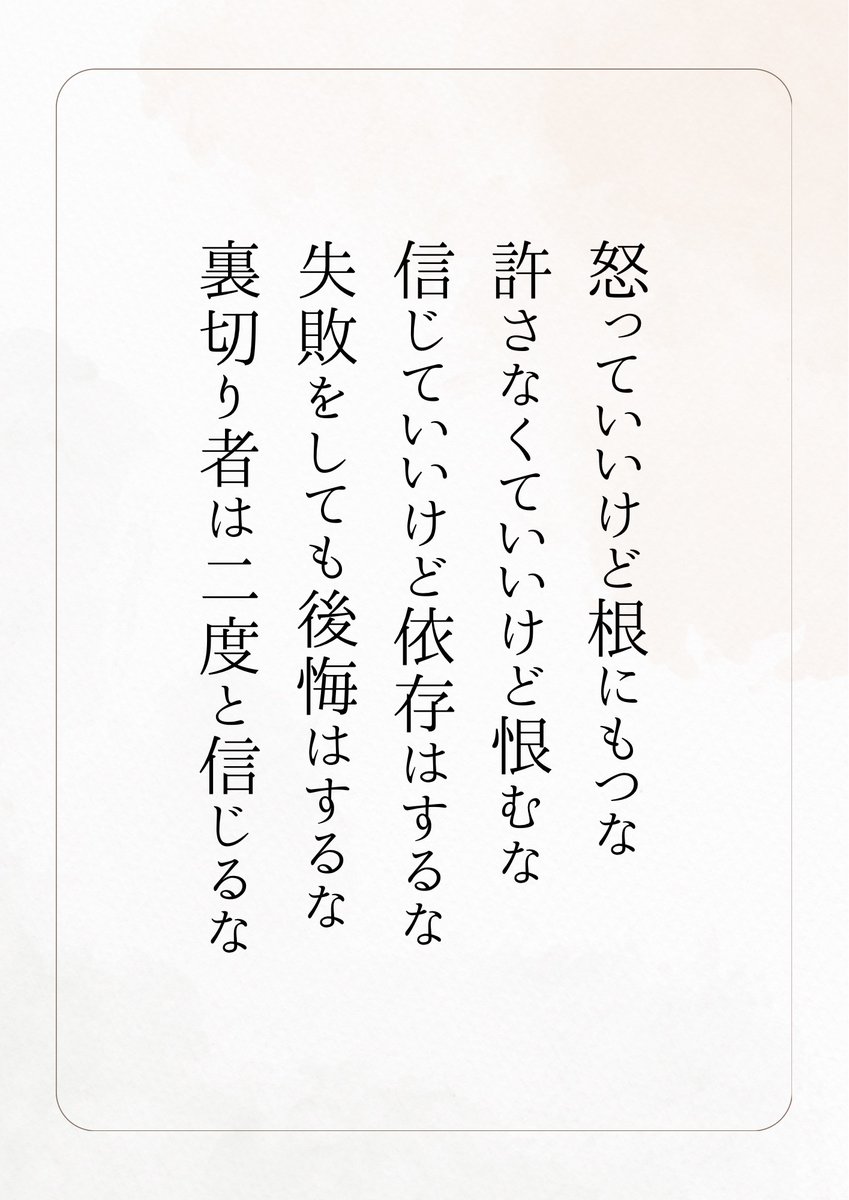 怒っていいけど根にもつな
許さなくていいけど恨むな
信じていいけど依存はするな
失敗をしても後悔はするな
裏切り者は二度と信じるな